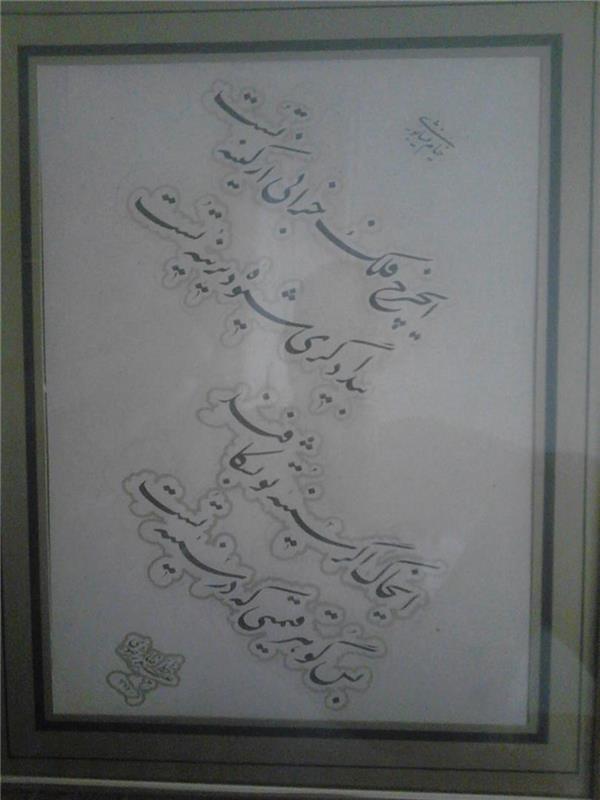 خیام نیشابوری
ایچرخ فلک خرابی از کینه تست
بیدادگری شیوه دیرینه تست
ایخاک اگر سینه تو بشکافند
بس گوهر قیمتی که در سینه تست